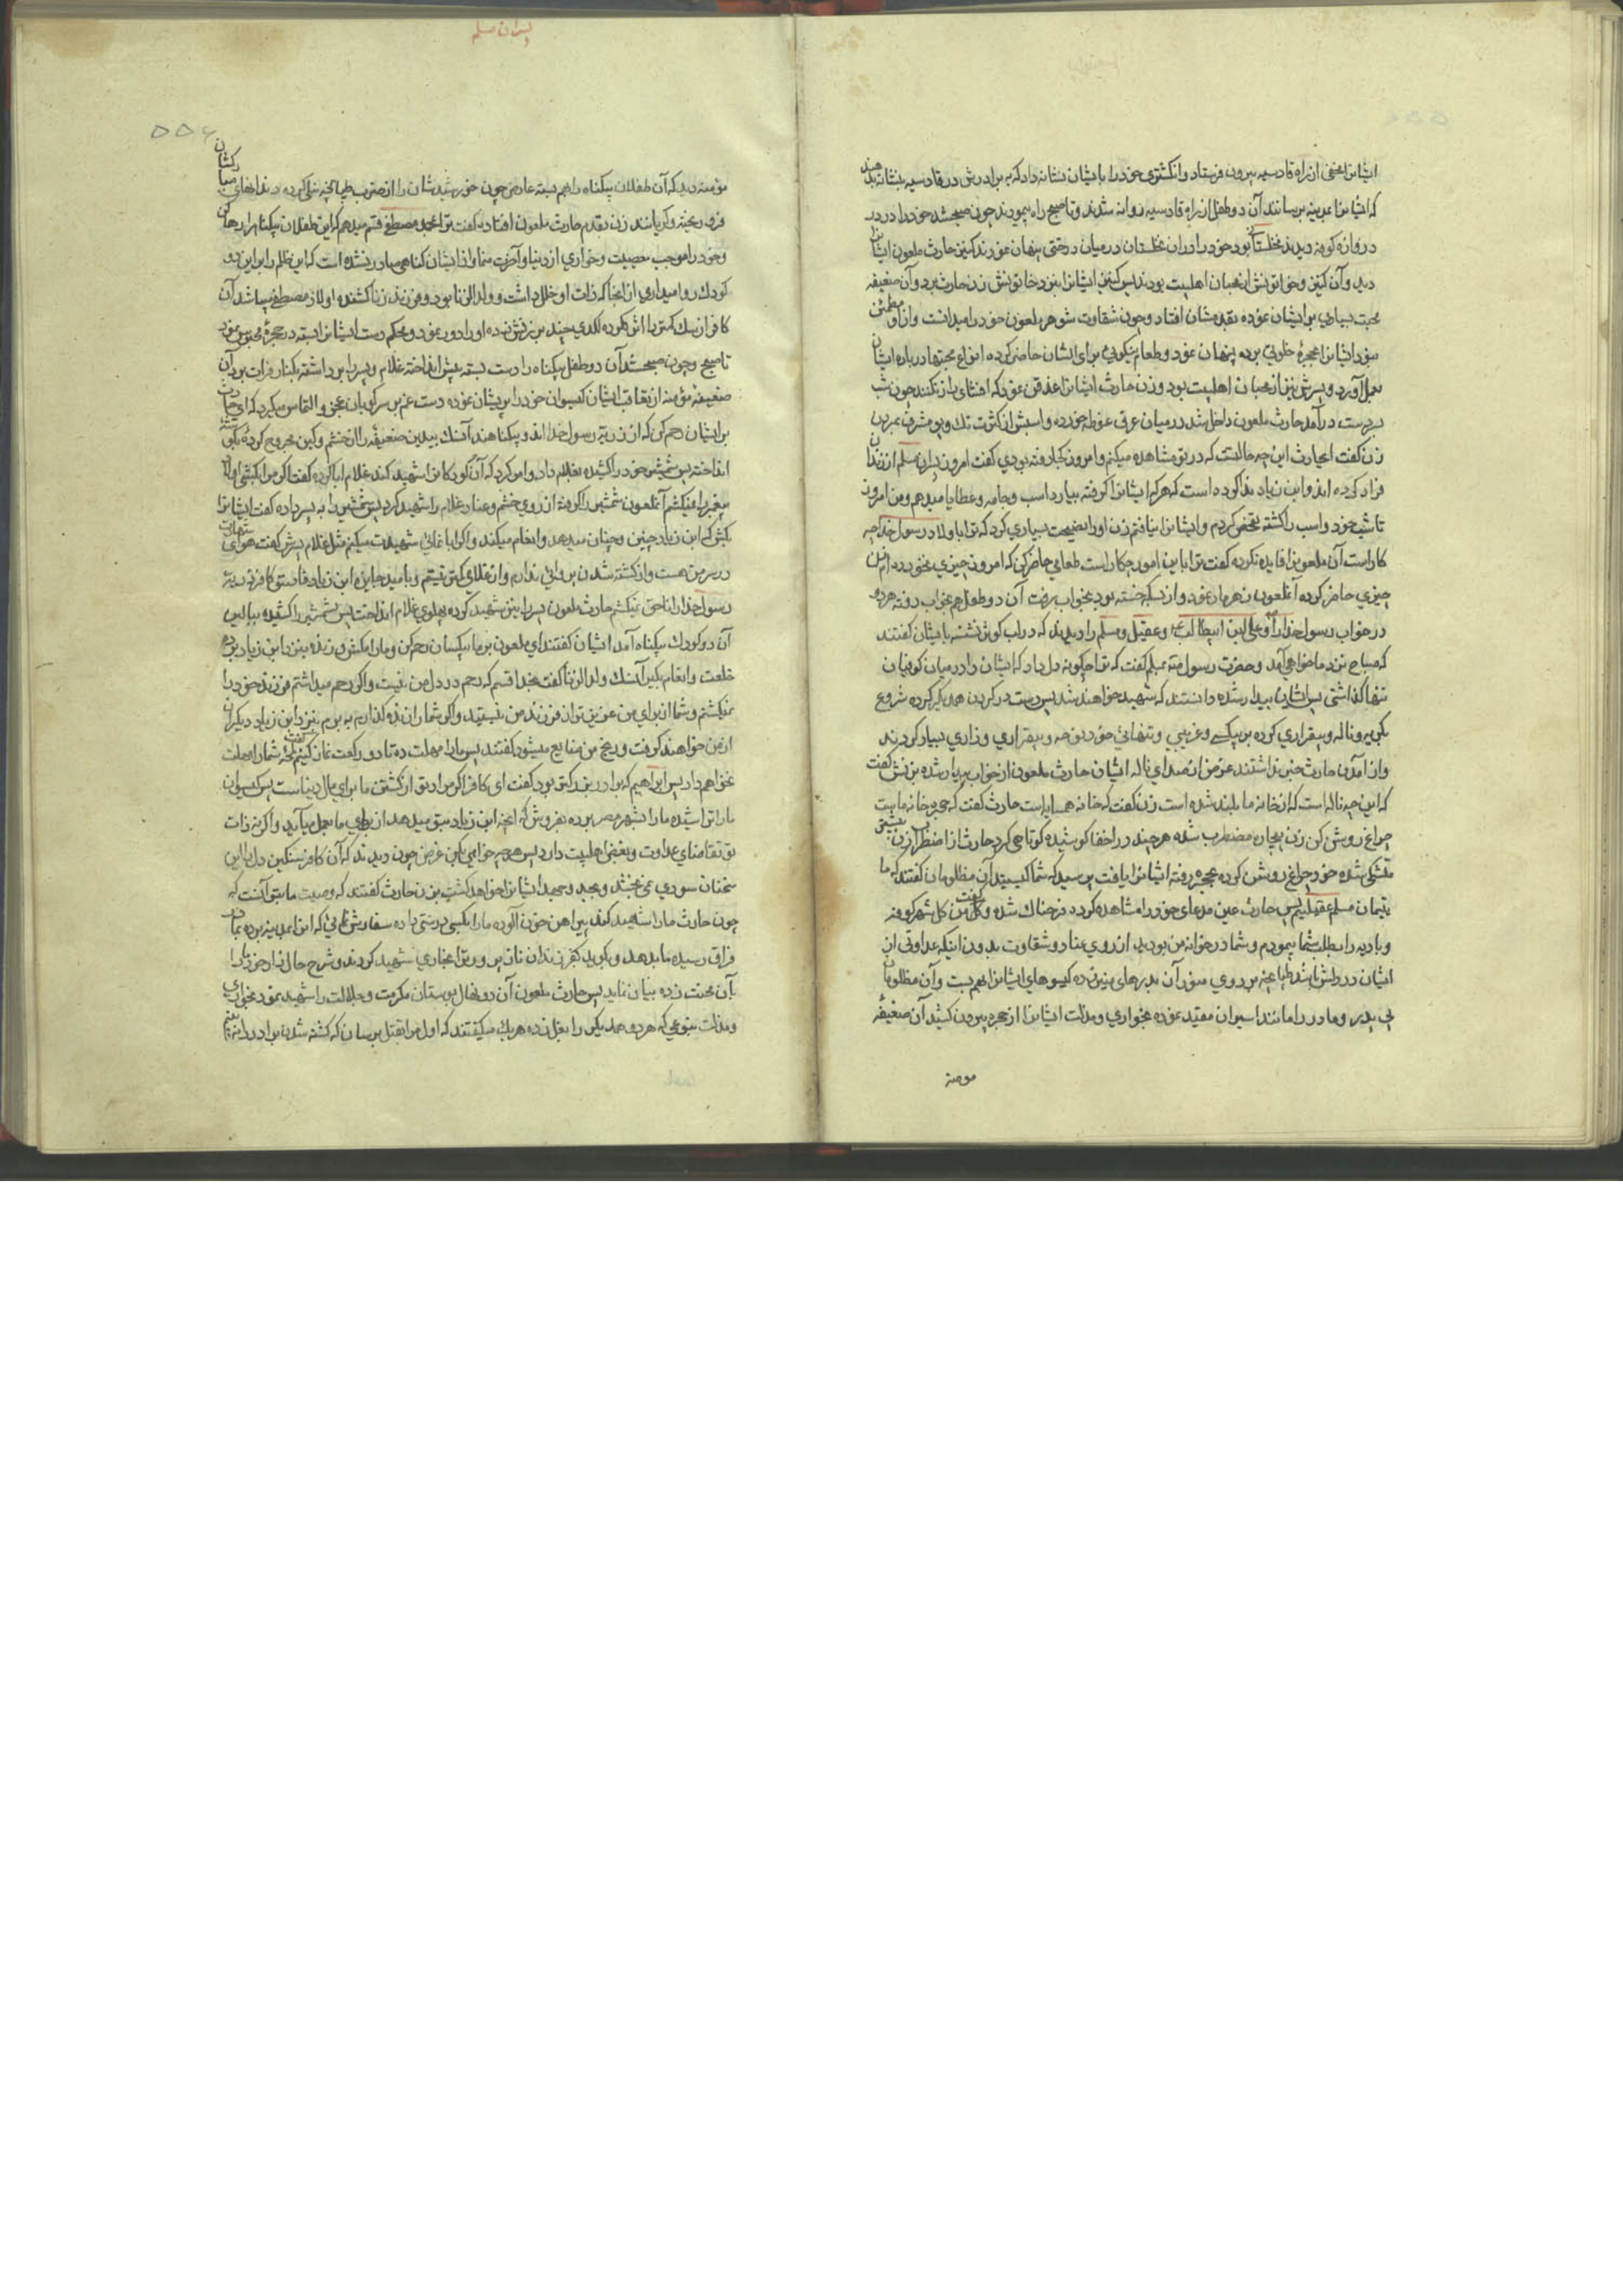 ایشانرا مخفی از راه قادسیه بیرون فرستاد وانکشتری خودرا بایشان نشانه داد که به برادرش در قادسیه بنشانه بدهند
که ایشانرا بمدینه برسانند آن دو طفل از راه قادسیه روانه شدند وتا صبح راه پیمودند چون صبح شد خودرا در در
دروازه کوفه دیدند نخلستانی بود خودرا در ان نخلستان در میان درختی پنهان نمودند کنیز حارث ملعون ایشانرا
دید وآن کنیز وخاتونش از محبان اهلبیت بودند پس کنیز ایشانرا بنزد خاتونش زن حارث برد وآن ضعیفه
محبت بسیاری بایشان نموده بقدمشان افتاد وچون شقاوت شوهر ملعون خودرا میدانست
بود ایشانرا بحجرهٔ خلوتی برده پنهان نمود وطعام نیکوئی برای ایشان حاضر کرده انواع محبتها درباره ایشان
بعمل آورد وپسرش نیز از محبان اهلبیت بود وزن حارث ایشانرا قدغن نمود که افشای راز نکنند چون شب
بردست درآمد حارث ملعون داخل شد در میان عرق غوطه خورده واسبش از کثرت تک وپو مشرف بمردن
زن کفت ایحارث این چه حالتست که در تو مشاهده میکنم وامروز کجا رفته بودی کفت امروز پسران مسلم از زندان
فرار کرده اند وابن زیاد ندا کرده است که هرکه ایشانرا کرفته بیارد اسب وجامه وعطایا میدهم ومن امروز
تا شب خود واسب را کشته تفحص کردم وایشانرا نیافتم زن اورا نصیحت بسیاری کرد که ترا با اولاد رسول خدا چه
کار است آن ملعونرا فایده نکرده کفت ترا باین امور چکار است طعامی حاضر کن که امروز چیزی نخورده ام زن
چیزی حاضر کرده آنملعون زهرمار نمود واز بسکه خسته بود بخواب رفت آن دو طفل هم بخواب رفته هردو
در خواب رسول خدارا وعلی ابن ابیطالب وعقیل ومسلم را دیدند که در لب کوثر نشسته بایشان کفتند
که صباح نزد ما خواهی آمد وحضرت رسول بمسلم کفت که ترا چکونه دل داد که ایشان را در میان کوفیان
تنها کذاشتی پس ایشان بیدار شده دانستند که شهید خواهند شد پس دست در کردن همدیکر کرده شروع
بکریه وناله وبیقراری کرده بر بیکسی وغریبی وتنهائی خود نوحه وبیقراری وزاری بسیار کردند
واز آمدن حارث خبر نداشتند غرض از صدای ناله ایشان حارث ملعون از خواب بیدار شده بزنش کفت
که این چه ناله است که از خانه ما بلند شده است زن کفت که خانه همسایه است حارث کفت که حجره خانه ماست
چراغ روشن کن زن بیچاره مضطرب شده هرچند در اخفا کوشیده کوتاهی کرد حارث از اضطراب زن
شده خود چراغ روشن کرده بحجره رفته ایشانرا یافت پرسید که شما کیستید آن مظلومان کفتند که ما
یتیمان مسلم عقیلیم پس حارث عین مدعای خودرا مشاهده کرده فرحناک شده وکفت من کل شهر کوفه
وبادیه را بطلب شما پیمودم وشما در خوانه من بودید از روی عناد وشقاوت بدون اینکه عداوتی از
ایشان در دلش باشد طپانچه بر روی منور آن بدرهای منیر زده کیسوهای ایشانرا بهم بست وآن مظلومان
بی پدر ومادر را مانند اسیران مقید نموده بخواری ومذلت ایشانرا از حجره بیرون کشید آن ضعیفهٔ
مومنه
پسران مسلم
۵۵۶
مؤمنه دید که آن طفلان بیکناه را بهم بسته عارض چون خورشیدشان را از ضرب طپانچه نیلی کرده دندانهای مبارکشان
فرو ریخته وکریانند زن بقدم حارث ملعون افتاد وکفت ترا بمحمد مصطفی قسم میدهم که این طفلان بیکناه را رها کن
وخودرا موجب معصیت وخواری از دنیا وآخرت منما واز ایشان کناهی صادر نشده است که این ظلم را براین دو
کودک روا میداری از انجا که ذات او خلل داشت وولد الزنا بود وفرزند زنا کشنده اولاد مصطفی میباشد آن
کافر از سک کمتر با اثر نکرده لکدی چند بر زنش زده اورا دور نمود ومحکم دست ایشانرا بسته در حجره محبوس نمود
تا صبح وچون صبح شد آن دو طفل بیکناه را دست بسته پیش انداخته غلام وپسر را برداشته بکنار فرات برد آن
ضعیفه مؤمنه از تعاقب ایشان کیسوان خودرا پریشان نموده دست غم بر سر کوبان عجز والتماس میکرد که ای حارث
بر ایشان رحم کن که از ذریهٔ رسول خدا اند وبیکناهند آنسک بیدین ضعیفه را از خشم وکین مجروح کرده
انداخته پس شمشیر خودرا کشیده بغلام داد وامر کرد که آن کودکانرا شهید کند غلام ابا کرده کفت اکر مرا بکشی اولاد
پیغمبر را نمیکشم آنملعون شمشیر را کرفته از روی خشم وعناد غلام را شهید کرد پس شمشیر را به پسر داده کفت ایشانرا
بکش که ابن زیاد چنین وچنان میدهد وانعام میکند واکر ابا نمائی شهیدت میکنم مثل غلام پسرش کفت هوای شهادت
در سر من هست واز کشته شدن پروائی ندارم واز غلامی کمتر نیستم وبامید جایزه ابن زیاد فاسق کافر ذریهٔ
رسول خدارا بناحق نمیکشم حارث ملعون پسر را نیز شهید کرده پهلوی غلام انداخت پس شمشیر را کشیده ببالین
آن دو کودک بیکناه آمد ایشان کفتند ای ملعون بر ما بیکسان رحم کن ومارا مکش وزنده بنزد ابن زیاد برده
خلعت وانعام بکیر آنسک ولد الزنا کفت بخدا قسم که رحم در دل من نیست واکر رحم میداشتم فرزند خودرا
نمیکشتم وشما از برای من عزیزتر از فرزند من نیستید واکر شمارا زنده کذارم به برم بنزد ابن زیاد دیکران
از من خواهند کرفت ورنج من ضایع میشود کفتند پس مارا مهلت ده تا دو رکعت نماز کنیم کفت شمارا مهلت
نخواهم داد پس ابراهیم که برادر بزرکتر بود کفت ای کافر اکر مراد تو از کشتن ما برای مال دنیاست پس کیسوان
مارا تراشیده مارا بشهر مصر برده بفروش که آنچه ابن زیاد بتو میدهد از بهای ما بعمل میآید واکر نه ذات
تو تقاضای عداوت وبغض اهلبیت دارد پس هرچه خواهی بکن غرض چون دیدند که آن کافر سنکین دل را این
سخنان سودی نمی بخشد وبجد وجهد ایشانرا خواهد کشت بزن حارث کفتند که وصیت ما بتو آنست که
چون حارث مارا شهید کند پیراهن خون آلوده مارا بکسی درستی داده سفارش نمائی که انرا بمدینه برده بمادر
فراق رسیده ما بدهد وبکوید که فرزندان نازپرورد ترا بخواری شهید کردند وشرح حال زار خود مارا
بآن محنت زده بیان نماید پس حارث ملعون آن دو نهال بوستان مکرمت وجلالت را شهید نمود بخواری
ومذلت بنوعی که هردو همدیکر را بغل زده هریک میکفتند که اول مرا بقتل برسان که کشته شدن برادر را نه بینم